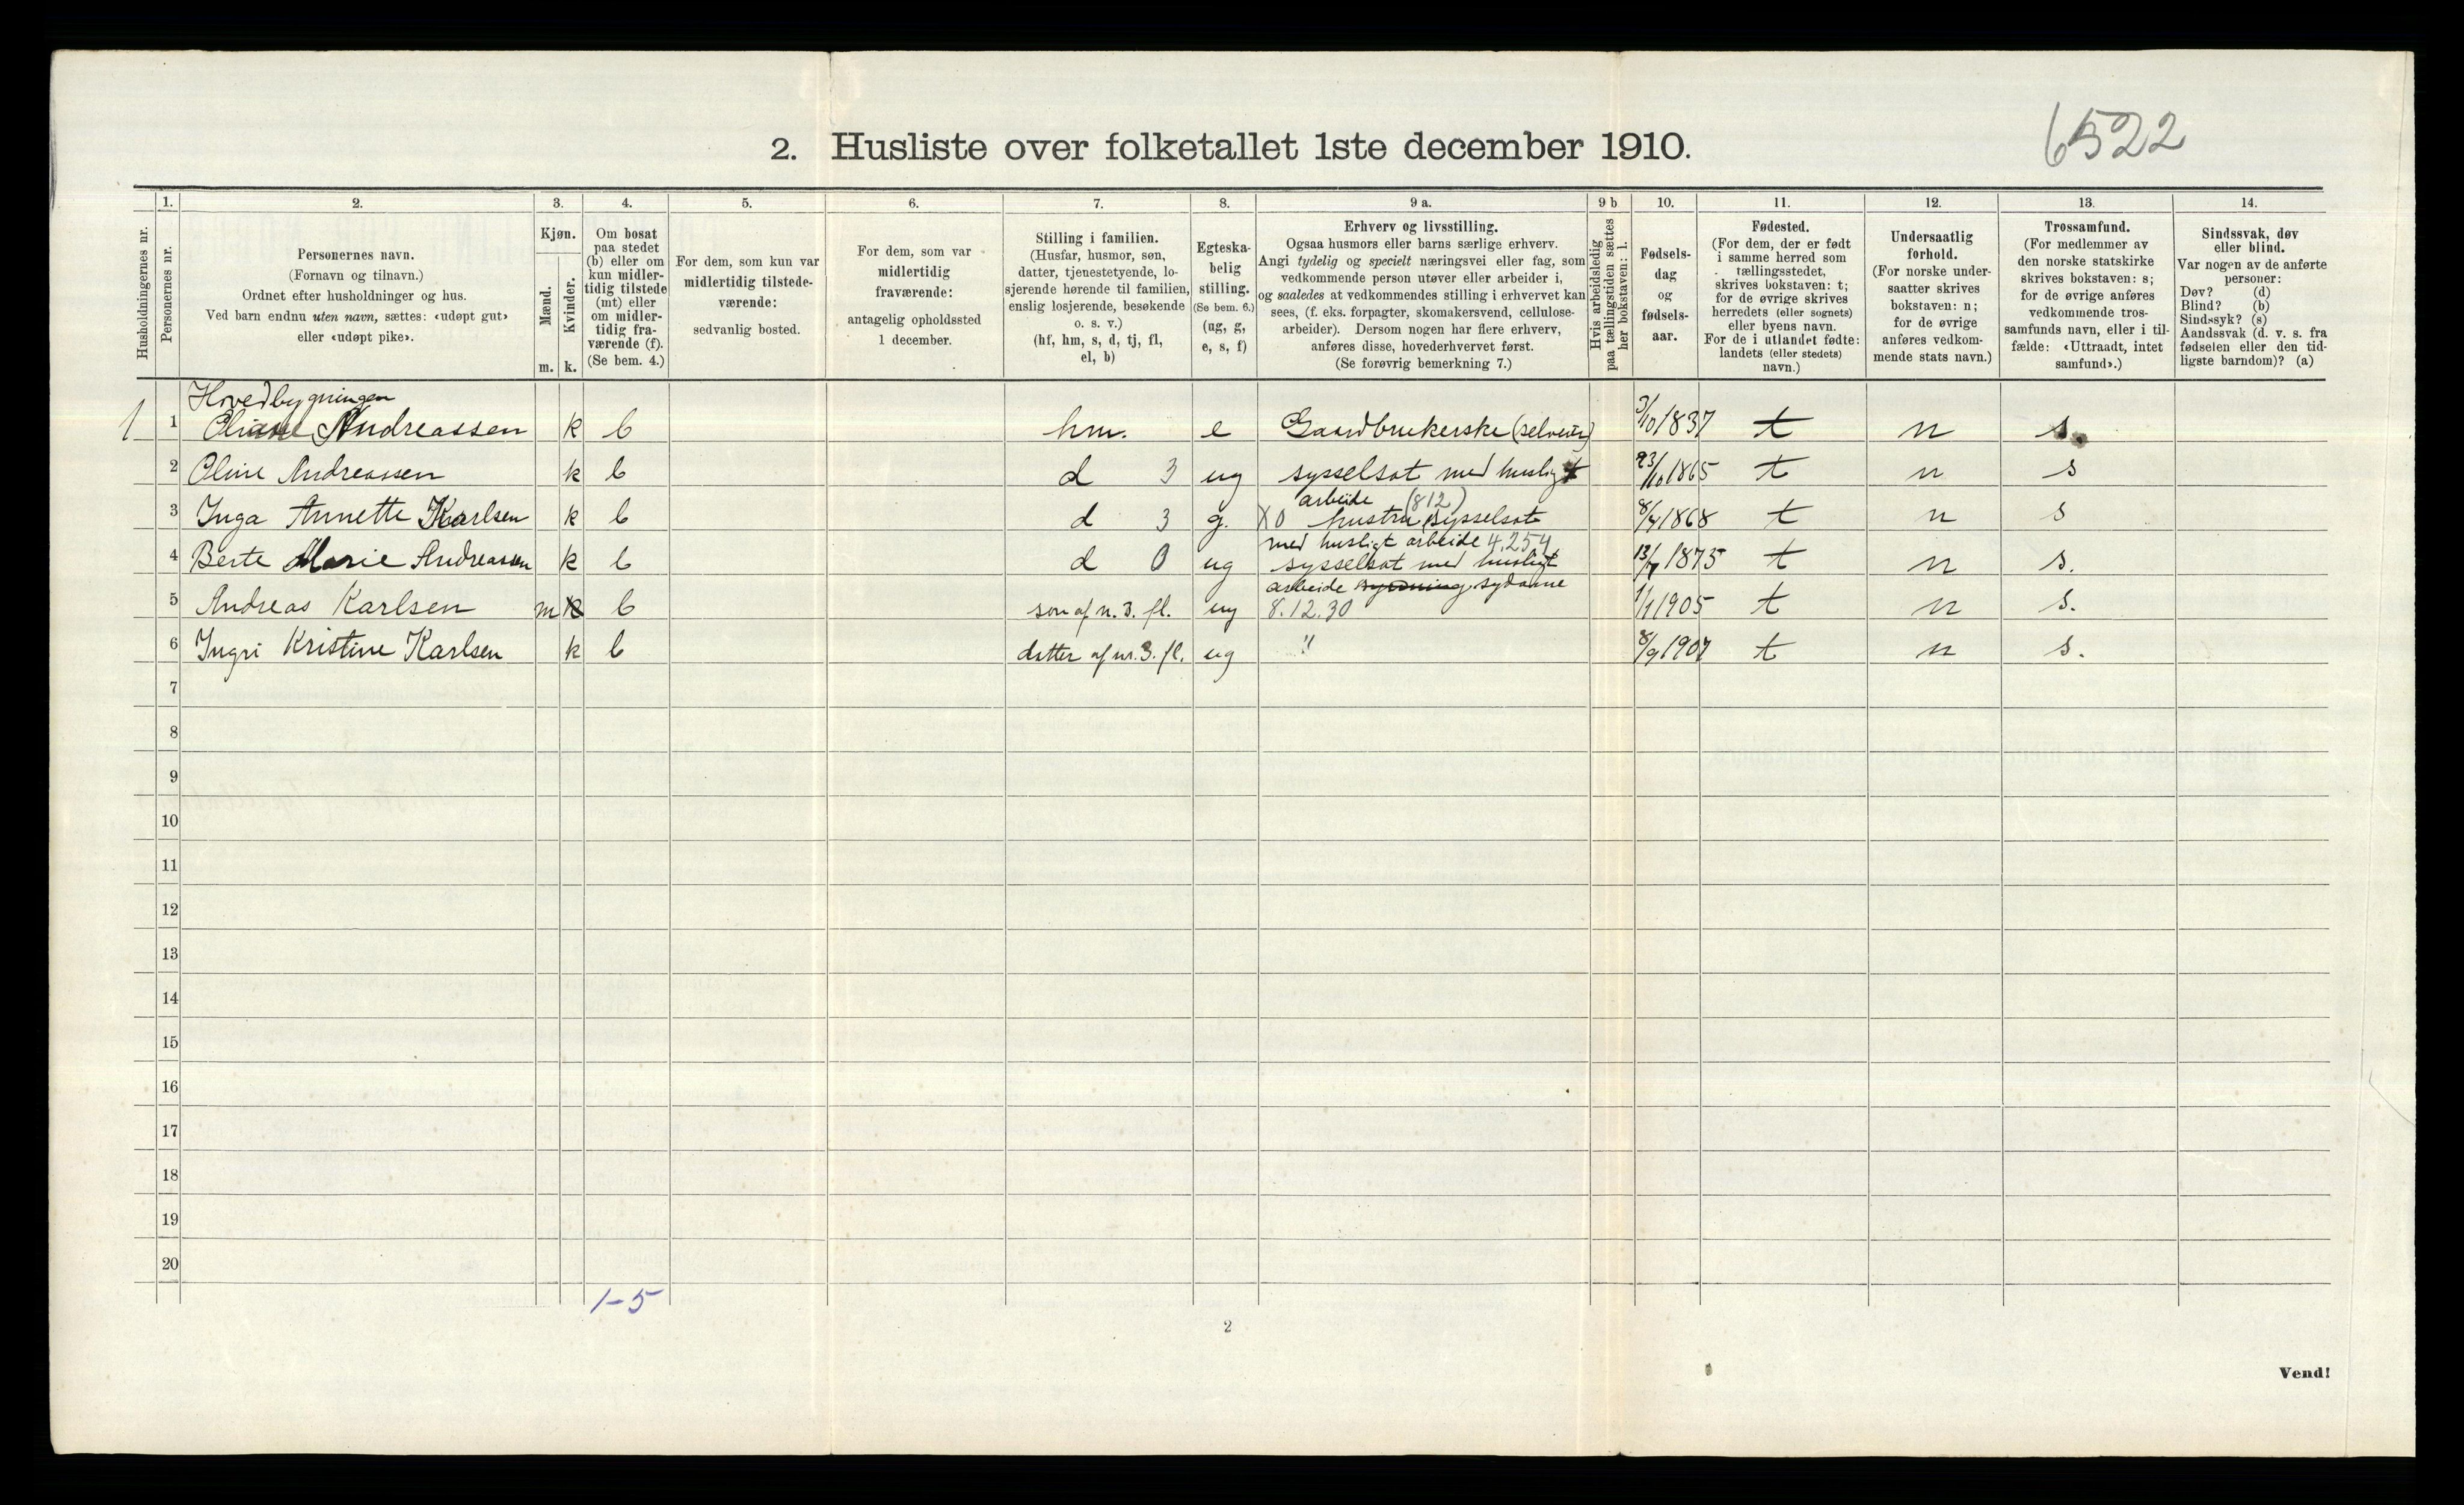 6522
2. Husliste over folketallet 1ste december 1910.
Husholdningernes nr.
1.
Personernes nr.
2.
Personernes navn.
(Fornavn og tilnavn.)
Ordnet efter husholdninger og hus.
Ved barn endnu uten navn, sættes: «udøpt gut»
eller «udøpt pike».
3.
Kjøn.
Mænd.
Kvinder.
m. k.
4.
Om bosat
paa stedet
(b) eller om
kun midler-
tidig tilstede
(mt) eller
om midler-
tidig fra-
værende (f).
(Se bem. 4.)
5.
For dem, som kun var
midlertidig tilstede-
værende:
sedvanlig bosted.
6.
For dem, som var
midlertidig
fraværende:
antagelig opholdssted
1 december.
7.
Stilling i familien.
(Husfar, husmor, søn,
datter, tjenestetyende, lo-
sjerende hørende til familien,
enslig losjerende, besøkende
o. s. v.)
(hf, hm, s, d, tj, fl,
el, b)
8.
Egteska-
belig
stilling.
(Se bem. 6.)
(ug, g,
e, s, f)
9 a.
Erhverv og livsstilling.
Ogsaa husmors eller barns særlige erhverv.
Angi tydelig og specielt næringsvei eller fag, som
vedkommende person utøver eller arbeider i,
og saaledes at vedkommendes stilling i erhvervet kan
sees, (f. eks. forpagter, skomakersvend, cellulose-
arbeider). Dersom nogen har flere erhverv,
anføres disse, hovederhvervet først.
(Se forøvrig bemerkning 7.)
9 b
Hvis arbeidsledig
paa tællingstiden sættes
her bokstaven: l.
10.
Fødsels-
dag
og
fødsels-
aar.
11.
Fødested.
(For dem, der er født
i samme herred som
tællingsstedet,
skrives bokstaven: t;
for de øvrige skrives
herredets (eller sognets)
eller byens navn.
For de i utlandet fødte:
landets (eller stedets)
navn.)
12.
Undersaatlig
forhold.
(For norske under-
saatter skrives
bokstaven: n;
for de øvrige
anføres vedkom-
mende stats navn.)
13.
Trossamfund.
(For medlemmer av
den norske statskirke
skrives bokstaven: s;
for de øvrige anføres
vedkommende tros-
samfunds navn, eller i til-
fælde: «Uttraadt, intet
samfund».)
14.
Sindssvak, døv
eller blind.
Var nogen av de anførte
personer:
Døv? (d)
Blind? (b)
Sindssyk? (s)
Aandssvak (d. v. s. fra
fødselen eller den tid-
ligste barndom)? (a)
Hovedbygningen
1 1 Andreassen k b hm. e Gaardbrukerske (selveier) 3/10 1837 t n s.
2 Oline Andreassen k b d 3 ug sysselsat med husligt 23/10 1865 t n s
arbeide (812)
3 Inga Annette Karlsen k b d 3 g. X0 hustru sysselsat 8/4 1868 t n s
med husligt arbeide 4,254
4 Berte Marie Andreassen k b d 0 ug sysselsat med husligt 13/7 1873 t n s.
arbeide sydame
5 Andreas Karlsen m k b søn af n. 3. fl. ug 8.12.30 1/1 1905 t n s.
6 Ingri Kristine Karlsen k b datter af nr. 3. fl. ug " 8/9 1907 t n s.
7
8
9
10
11
12
13
14
15
16
17
18
19
20
1-5
2
Vend!